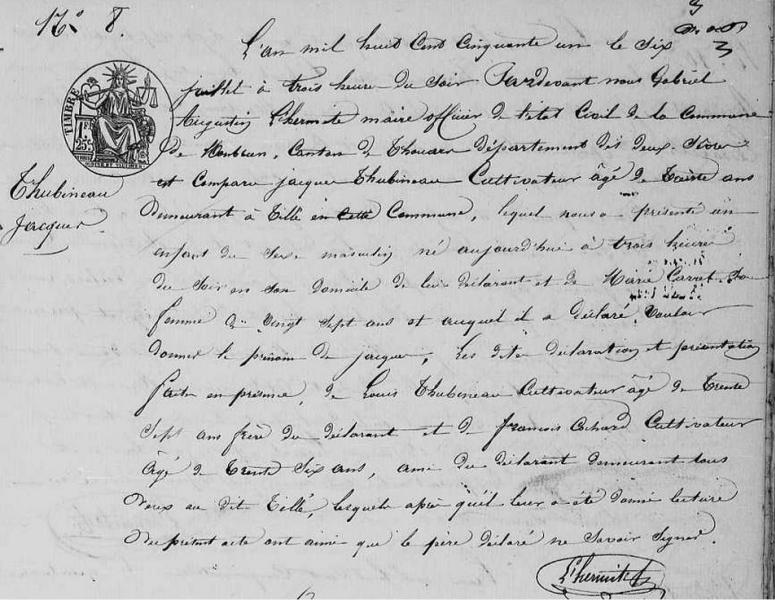 N° 8.
L'an mil huit Cent Cinquante un le Six
juillet à trois heure du Soir Pardevant nous Gabriel
TIMBRE
1F 25c
Augustin Lhermite maire officier de l'état Civil de la Commune
de Canton de Thouars département des deux-Sèvres
Thubineau
Jacques.
est Comparu jacques Thubineau Cultivateur âgé de Trente ans
demeurant à Tillé en Cette Commune, lequel nous a présenté un
enfant du Sexe masculin né aujourd'hui à trois heure
du Soir en Son domicile de lui déclarant et de Marie Carret Sa
femme de Vingt Sept ans et auquel il a déclaré Vouloir
donner le prénom de jacques, Les dites déclaration et présentation
faite en présence, de Louis Thubineau Cultivateur âgé de Trente
Sept ans frère du déclarant et de françois Cochard Cultivateur
âgé de Trente Six ans, ami du déclarant demeurant tous
deux au dit Tillé, lesquels après qu'il leur a été donné lecture
du présent acte ont ainsi que le père déclaré ne Savoir Signer.
Lhermite